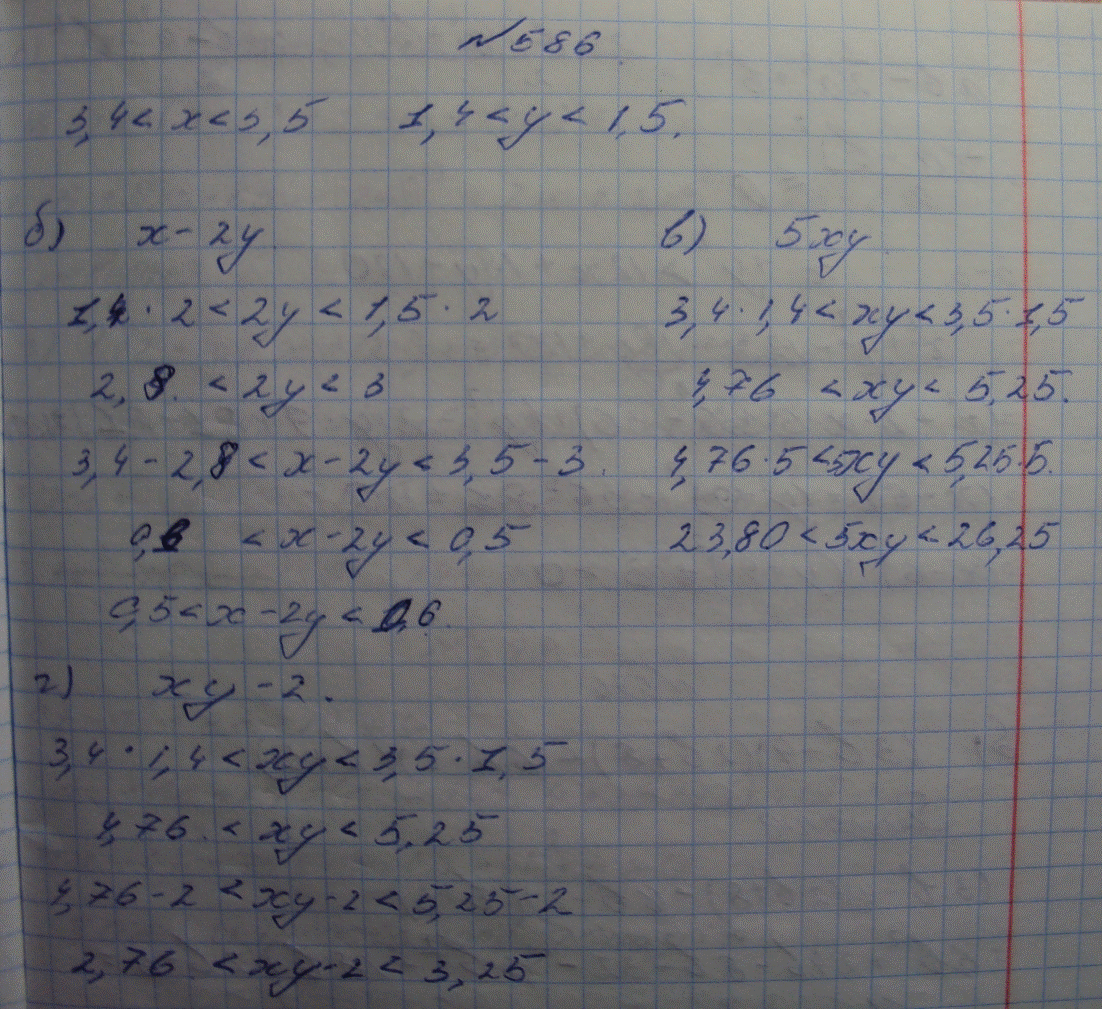 №586
3,4 < x < 3,5 1,4 < y < 1,5.
б) x - 2y
1,4 · 2 < 2y < 1,5 · 2
2,8 < 2y < 3
3,4 - 2,8 < x - 2y < 3,5 - 3.
0,6 < x - 2y < 0,5
0,5 < x - 2y < 0,6.
в) 5xy
3,4 · 1,4 < xy < 3,5 · 1,5
4,76 < xy < 5,25.
4,76 · 5 < 5xy < 5,25 · 5.
23,80 < 5xy < 26,25
г) xy - 2.
3,4 · 1,4 < xy < 3,5 · 1,5
4,76 < xy < 5,25
4,76 - 2 < xy - 2 < 5,25 - 2
2,76 < xy - 2 < 3,25